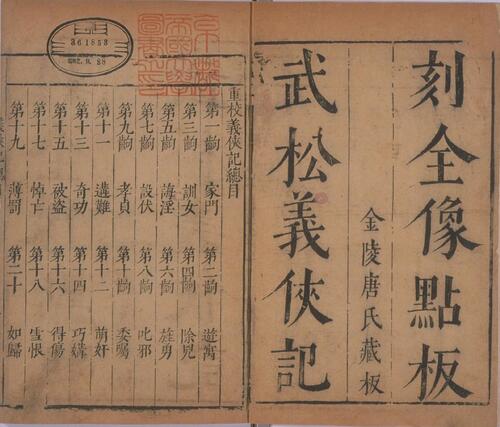 刻全像點板
金陵唐氏藏板
武松義俠記
重校義俠記總目
第一齣 家門 第二齣 遊寓
第三齣 訓女 第四齣 除兇
第五齣 誨淫 第六齣 旌勇
第七齣 設伏 第八齣 叱邪
第九齣 孝貞 第十齣 委囑
第十一 遘難 第十二 萌奸
第十三 奇功 第十四 巧媾
第十五 被盜 第十六 得傷
第十七 悼亡 第十八 雪恨
第十九 薄罰 第二十 如歸
361853